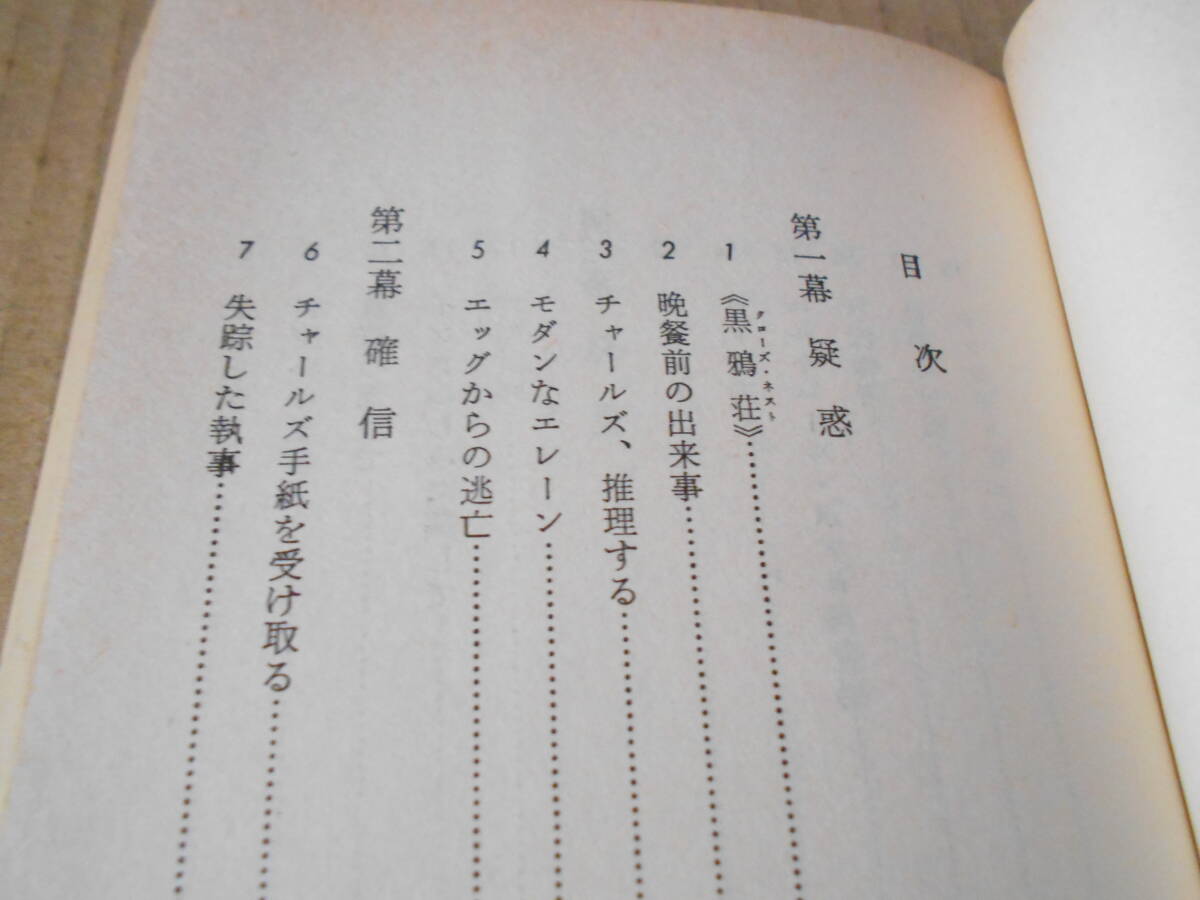 目次
第一幕 疑惑
1 《黒鴉荘》
クローズ・ネスト
2 晩餐前の出来事
3 チャールズ、推理する
4 モダンなエレーン
5 エッグからの逃亡
第二幕 確信
6 チャールズ手紙を受け取る
7 失踪した執事